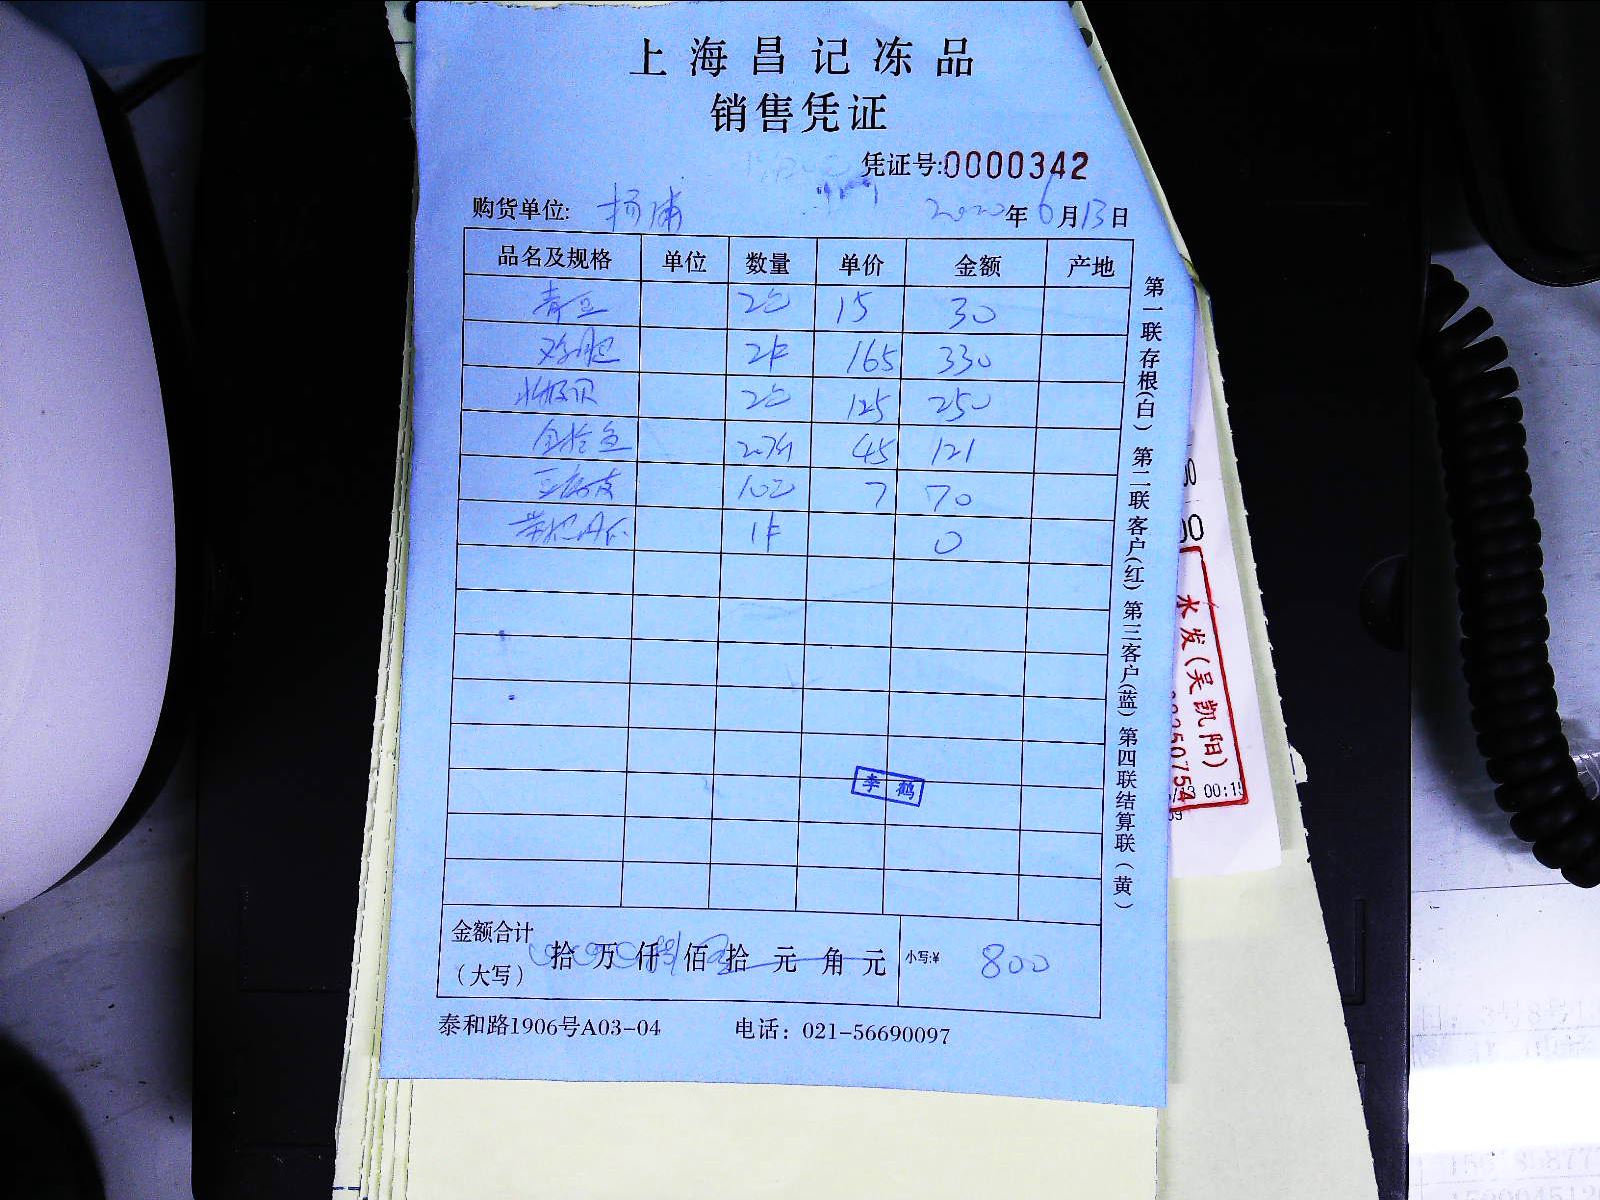 上海昌记冻品
销售凭证
凭证号:0000342
购货单位: 杨浦 2020年6月13日
品名及规格 单位 数量 单价 金额 产地
青豆 2包 15 30
2件 165 330
2包 125 250
金枪鱼 45 121
10包 7 70
1件 0
金额合计
(大写) 拾 万 仟 佰 拾 元 角 元 小写:¥ 800
泰和路1906号A03-04 电话: 021-56690097
第一联存根(白) 第二联客户(红) 第三客户(蓝) 第四联结算联(黄)
李鹤
水发(吴凯阳)